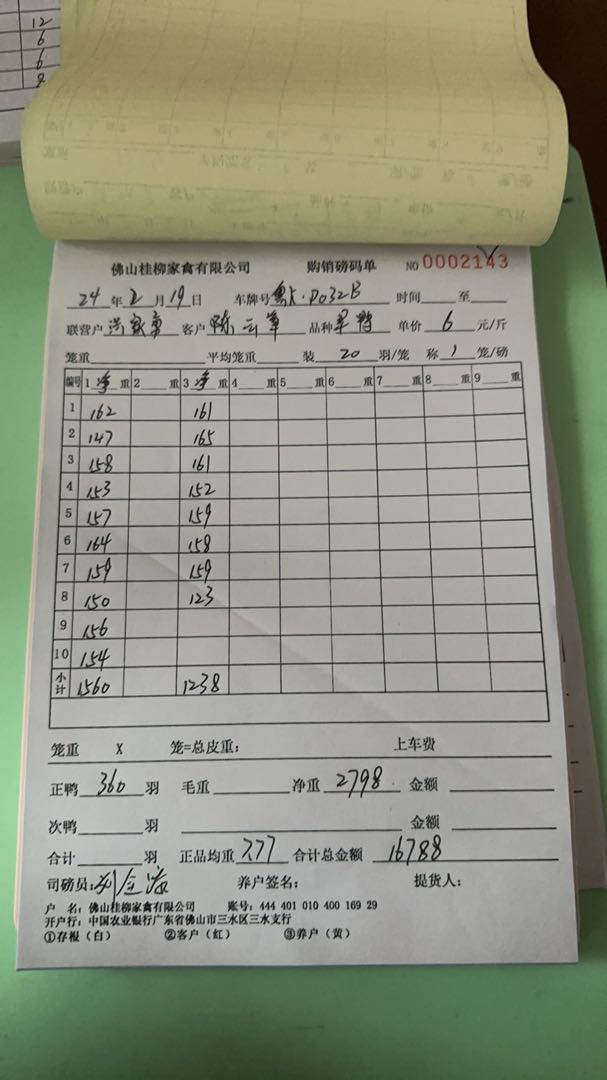 12
6
6
佛山桂柳家禽有限公司 购销磅码单 NO 0002143
24 年 2 月 19 日 车牌号 粤 D032B 时间 至
联营户 客户 陈云 品种 鸭 单价 6 元/斤
笼重 平均笼重 装 20 羽/笼 称 1 笼/磅
编号 1 净 重 2 重 3 净 重 4 重 5 重 6 重 7 重 8 重 9 重
1 162 161
2 147 165
3 158 161
4 153 152
5 157 159
6 164 158
7 159 159
8 150 123
9 156
10 154
小计 1560 1238
笼重 X 笼=总皮重: 上车费
正鸭 360 羽 毛重 净重 2798 金额
次鸭 羽 金额
合计 羽 正品均重 7.77 合计总金额 16788
司磅员: 刘 养户签名: 提货人:
户 名: 佛山桂柳家禽有限公司 账号: 444 401 010 400 169 29
开户行: 中国农业银行广东省佛山市三水区三水支行
①存根(白) ②客户(红) ③养户(黄)